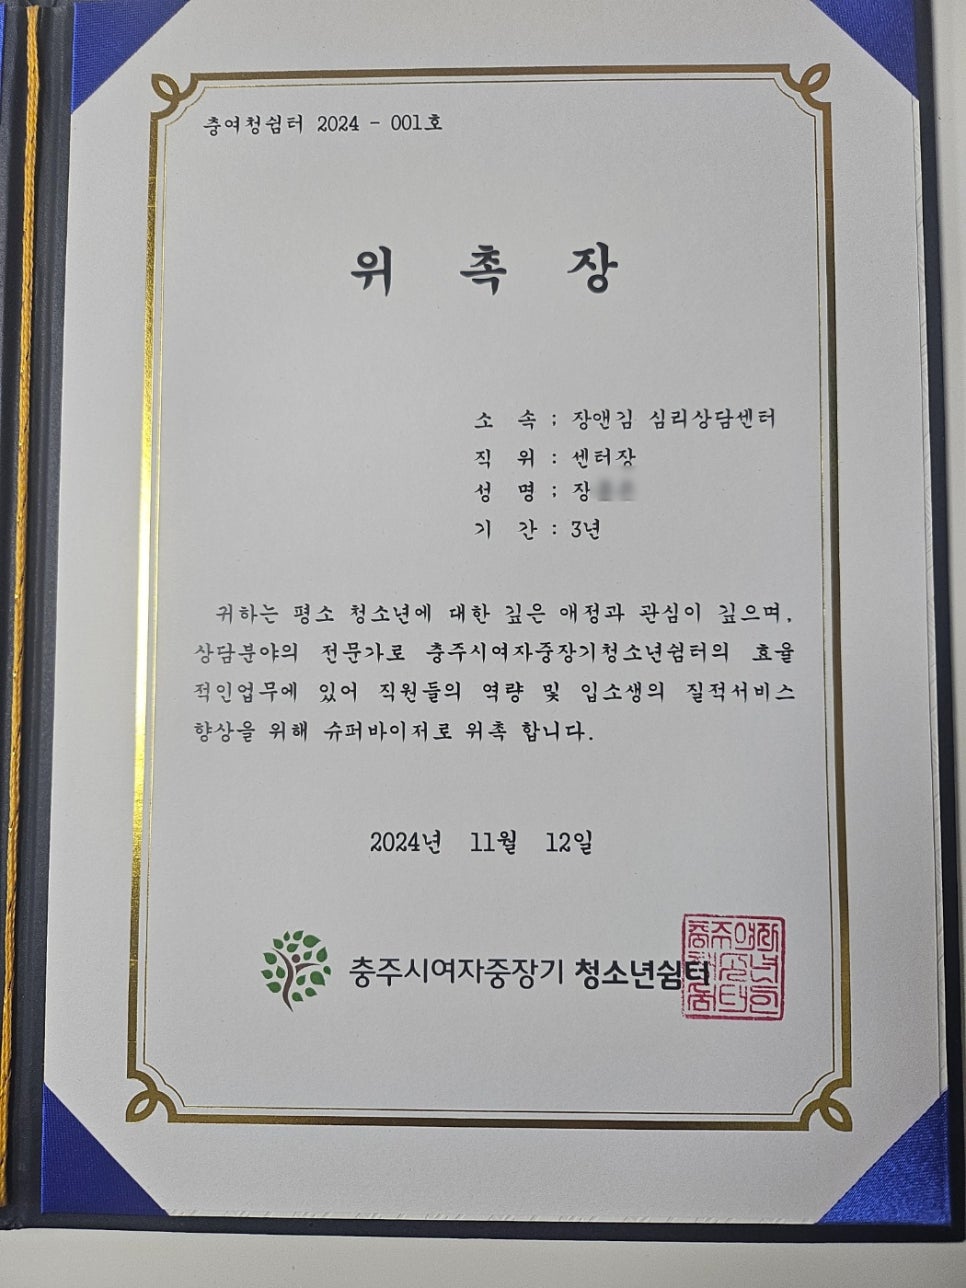 충여청쉼터 2024 - 001호
위 촉 장
소 속 : 장앤김 심리상담센터
직 위 : 센터장
성 명 : 장
기 간 : 3년
귀하는 평소 청소년에 대한 깊은 애정과 관심이 깊으며,
상담분야의 전문가로 충주시여자중장기청소년쉼터의 효율
적인업무에 있어 직원들의 역량 및 입소생의 질적서비스
향상을 위해 슈퍼바이저로 위촉 합니다.
2024년 11월 12일
충주시여자중장기 청소년쉼터